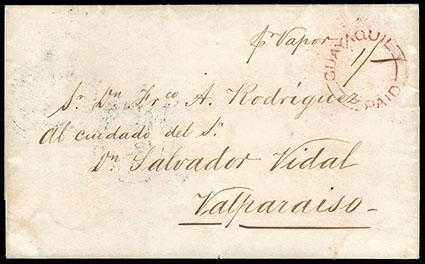 pr Vapor
GUAYAQUIL
PAID
1/
Sr. Dn Frco. A. Rodriguez
Al cuidado del Sr.
Dn. Salvador Vidal
Valparaiso-